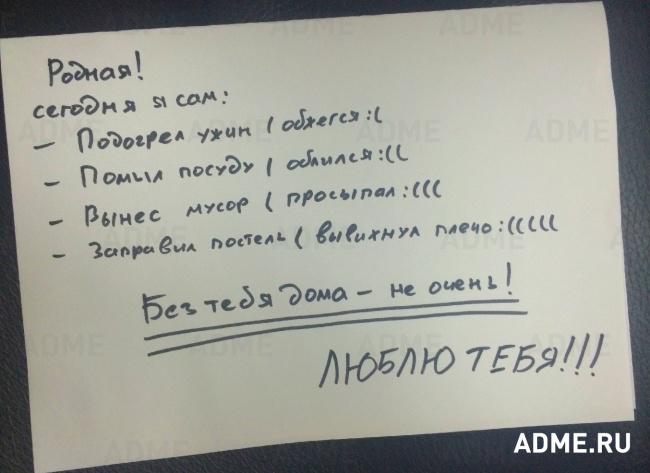 Родная!
сегодня я сам:
- Подогрел ужин ( обжегся :(
- Помыл посуду ( облился :((
- Вынес мусор ( просыпал :(((
- Заправил постель ( вывихнул плечо :(((((
Без тебя дома - не очень!
ЛЮБЛЮ ТЕБЯ!!!
ADME.RU